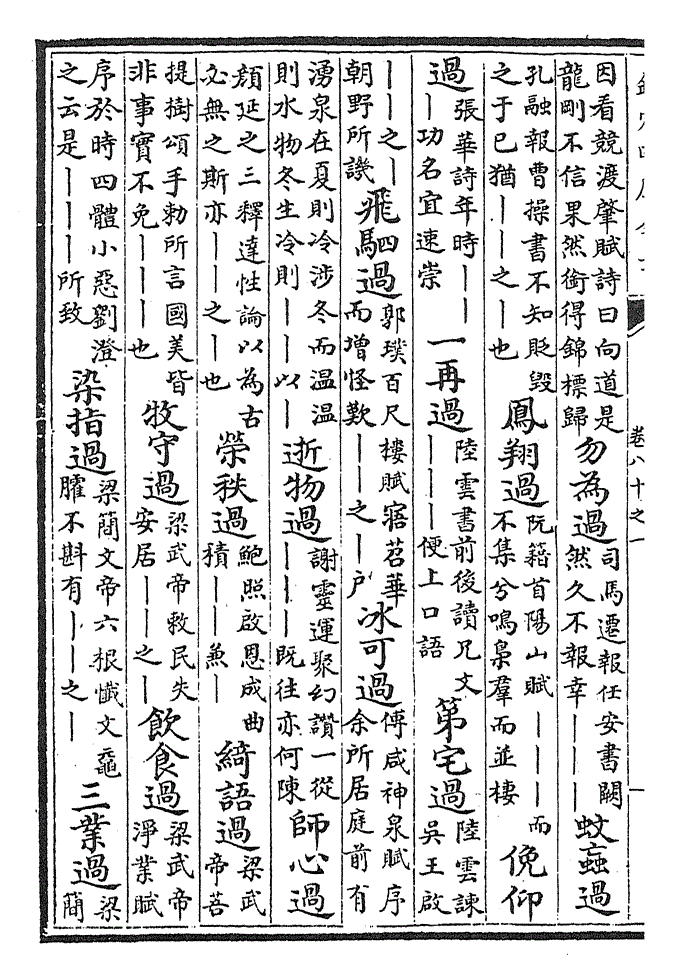 卷八十之一
因看競渡肇賦詩曰向道是龍剛不信果然銜得錦標歸 勿為過 司馬遷報任安書闕然久不報幸丨丨丨 蚊蝱過
孔融報曹操書不知貶毀之于已猶丨丨之丨也 鳳翔過 阮籍首陽山賦丨丨丨而不集兮鳴梟羣而並棲 俛仰
過 張華詩年時丨丨丨功名宜速崇 一再過 陸雲書前後讀兄文丨丨丨便上口語 第宅過 陸雲諫吳王啟
丨丨之丨朝野所譏 飛駟過 郭璞百尺樓賦寤苕華而增怪歎丨丨之丨户 冰可過 傅咸神泉賦序余所居庭前有
湧泉在夏則冷涉冬而温温則水物冬生冷則丨丨以丨 逝物過 謝靈運聚幻讚一從丨丨丨既往亦何陳 師心過
顔延之三釋達性論以為古必無之斯亦丨丨之丨也 榮秩過 鮑照啟恩成曲積丨丨兼丨 綺語過 梁武帝菩
提樹頌手勅所言國美皆非事實不免丨丨丨也 牧守過 梁武帝敕民失安居丨丨之丨 飲食過 梁武帝淨業賦
序於時四體小惡劉澄之云是丨丨丨丨所致 染指過 梁簡文帝六根懺文黿臛不斟有丨丨之丨 三業過 梁簡